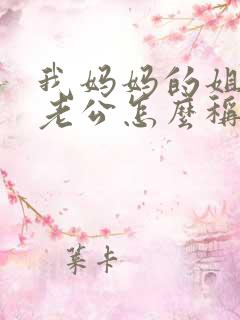 我妈妈的姐
老公怎麽稱
葉卡